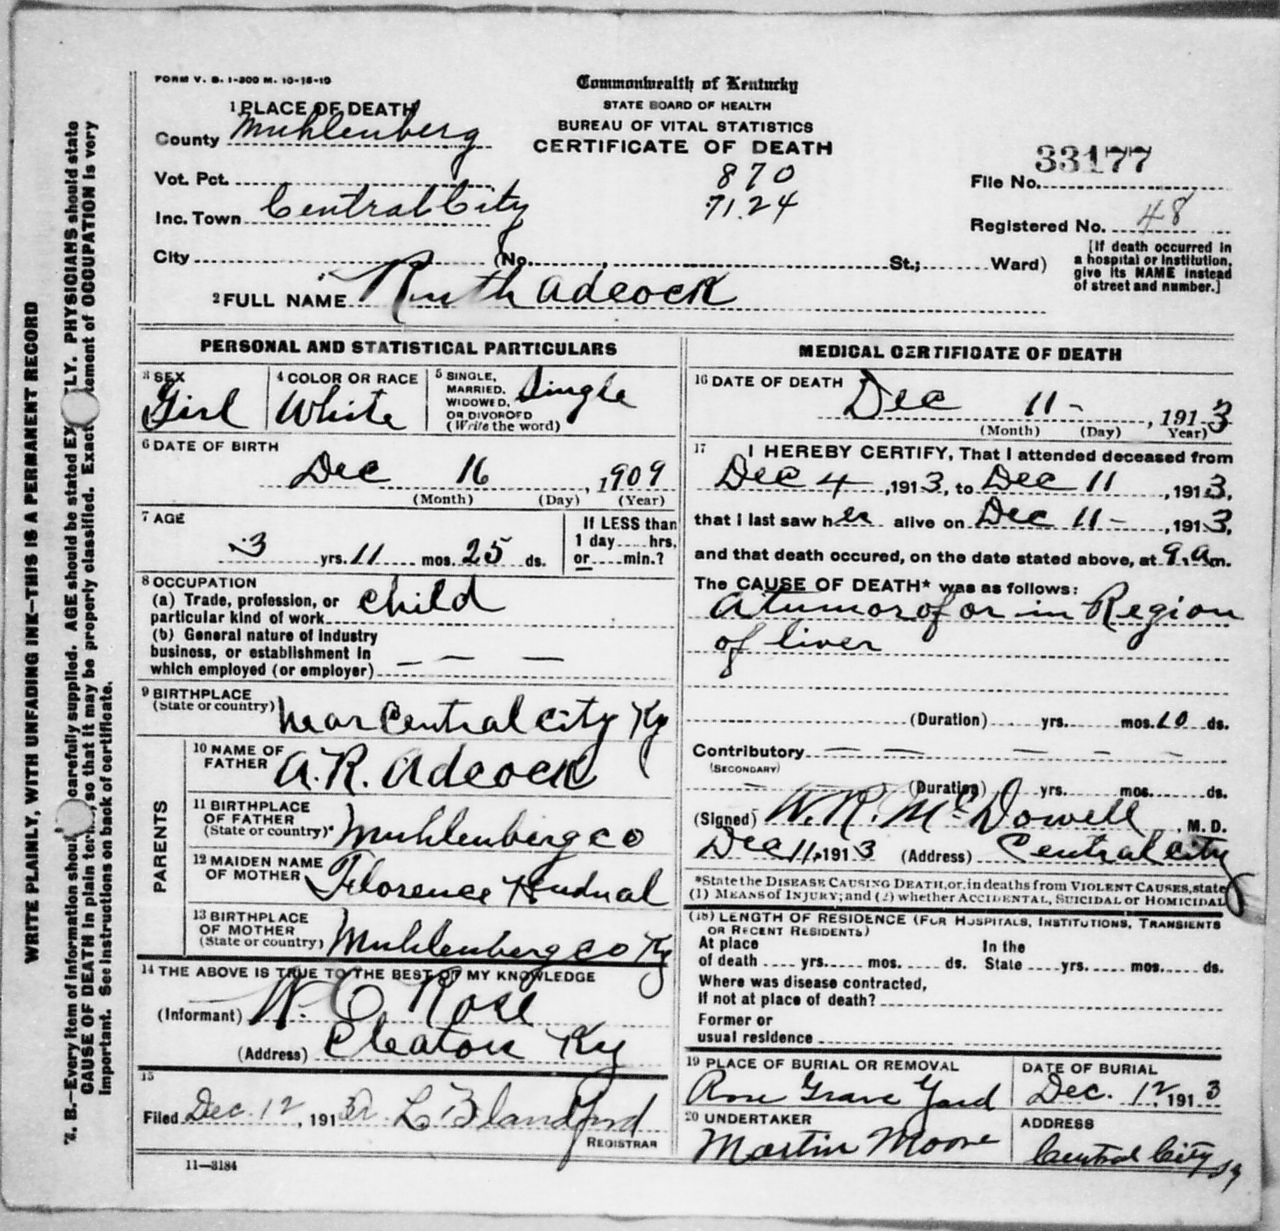 FORM V. S. 1-300 M. 10-18-10
Commonwealth of Kentucky
STATE BOARD OF HEALTH
BUREAU OF VITAL STATISTICS
CERTIFICATE OF DEATH
1 PLACE OF DEATH
County Muhlenberg
Vot. Pct.
Inc. Town Central City
City (No. , St.; Ward)
870
71.24
33177
File No.
Registered No. 48
[If death occurred in
a hospital or institution,
give its NAME instead
of street and number.]
2 FULL NAME Ruth Adcock
PERSONAL AND STATISTICAL PARTICULARS
3 SEX
Girl
4 COLOR OR RACE
White
5 SINGLE,
MARRIED,
WIDOWED,
OR DIVORCED
(Write the word)
Single
6 DATE OF BIRTH
Dec 16, 1909
(Month) (Day) (Year)
7 AGE
3 yrs. 11 mos. 25 ds.
If LESS than
1 day hrs.
or min.?
8 OCCUPATION
(a) Trade, profession, or
particular kind of work child
(b) General nature of industry
business, or establishment in
which employed (or employer) — — —
9 BIRTHPLACE
(State or country) near Central City Ky
PARENTS
10 NAME OF
FATHER A. R. Adcock
11 BIRTHPLACE
OF FATHER
(State or country) Muhlenberg co
12 MAIDEN NAME
OF MOTHER Florence
13 BIRTHPLACE
OF MOTHER
(State or country) Muhlenberg co Ky
14 THE ABOVE IS TRUE TO THE BEST OF MY KNOWLEDGE
(Informant) W. C. Rose
(Address) Cleaton Ky
15
Filed Dec. 12, 1913 L Blandford
REGISTRAR
11—3184
MEDICAL CERTIFICATE OF DEATH
16 DATE OF DEATH
Dec 11-, 1913
(Month) (Day) Year)
17 I HEREBY CERTIFY, That I attended deceased from
Dec 4, 1913, to Dec 11, 1913,
that I last saw her alive on Dec 11-, 1913,
and that death occured, on the date stated above, at 9.a.m.
The CAUSE OF DEATH* was as follows:
A tumor of or in Region
of liver
(Duration) yrs. mos. 10 ds.
Contributory — — — — —
(SECONDARY)
(Duration) yrs. mos. ds.
(Signed) W. R. McDowell, M. D.
Dec 11, 1913 (Address) Central City
*State the DISEASE CAUSING DEATH, or, in deaths from VIOLENT CAUSES, state
(1) MEANS of INJURY; and (2) whether ACCIDENTAL, SUICIDAL or HOMICIDAL
(18) LENGTH OF RESIDENCE (FOR HOSPITALS, INSTITUTIONS, TRANSIENTS
OR RECENT RESIDENTS)
At place In the
of death yrs. mos. ds. State yrs. mos. ds.
Where was disease contracted,
If not at place of death?
Former or
usual residence
19 PLACE OF BURIAL OR REMOVAL
Rose Grave Yard
DATE OF BURIAL
Dec. 12, 1913
20 UNDERTAKER
Martin Moore
ADDRESS
Central City Ky
WRITE PLAINLY, WITH UNFADING INK—THIS IS A PERMANENT RECORD
B.—Every item of information carefully supplied. AGE should be stated PHYSICIANS should state
CAUSE OF DEATH in plain so that it may be properly classified. Exact of OCCUPATION is very
Important. See instructions on back of certificate.